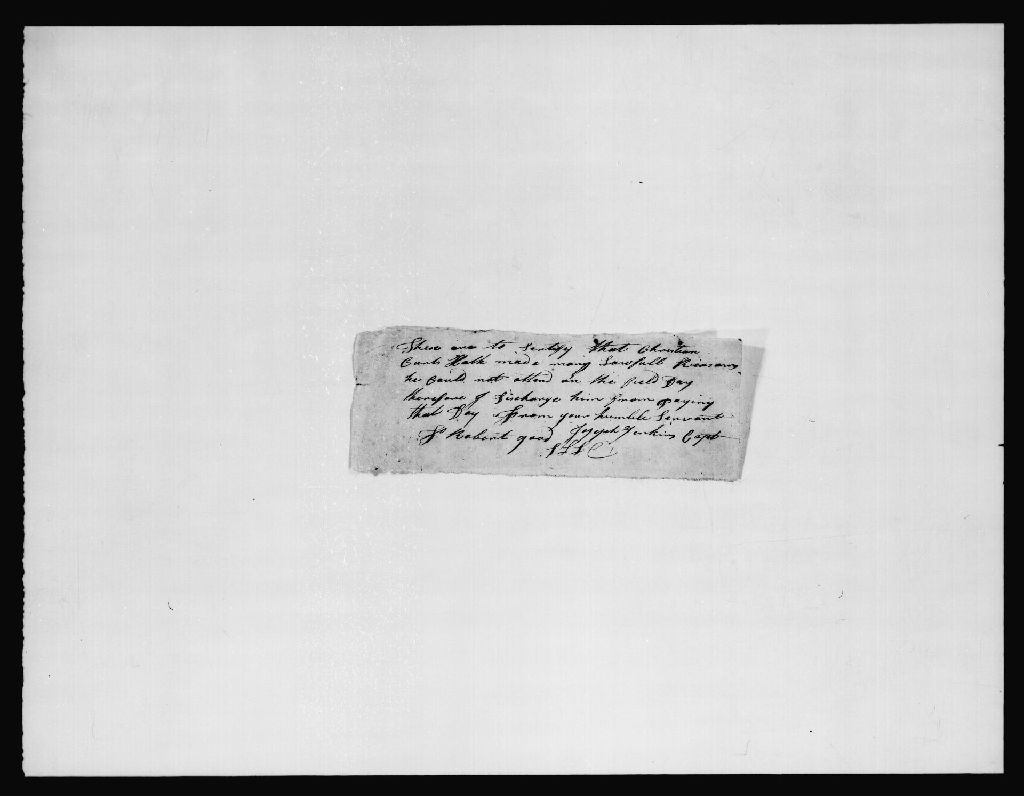 These are to Certify that Christian
Hath made many Lawfull Reasons
he Could not attend on the field Day
therefore I Discharge him from paying
that Day from your humble Servant
To Robert good Joseph Jenkins Capt